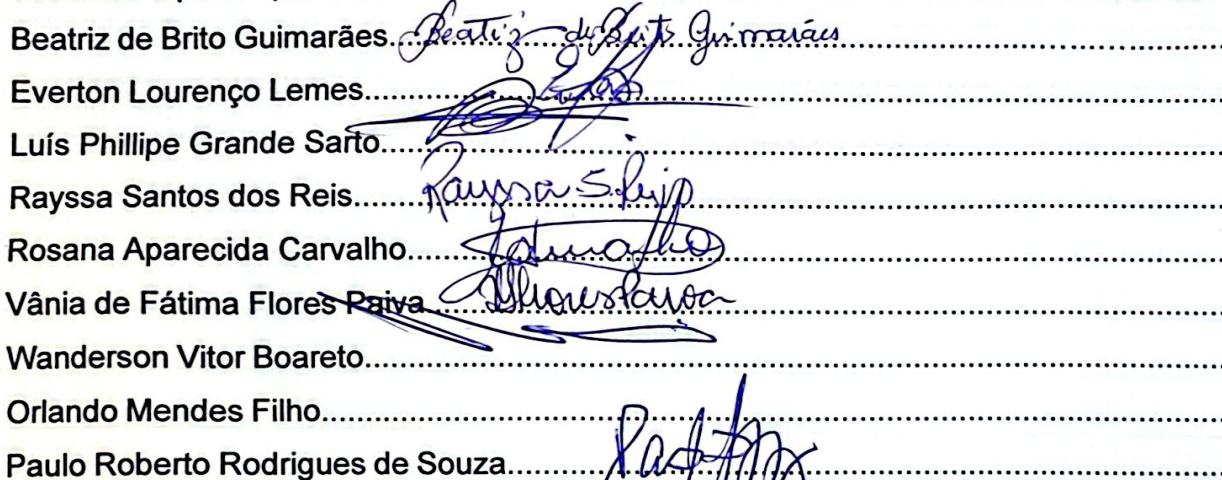 Beatriz de Brito Guimarães..........Beatriz de Brito Guimarães
Everton Lourenço Lemes..........
Luís Phillipe Grande Sarto..........
Rayssa Santos dos Reis..........Rayssa S. Reis
Rosana Aparecida Carvalho..........Carvalho
Vânia de Fátima Flores Paiva..........VFlores Paiva
Wanderson Vitor Boareto..........
Orlando Mendes Filho..........
Paulo Roberto Rodrigues de Souza..........